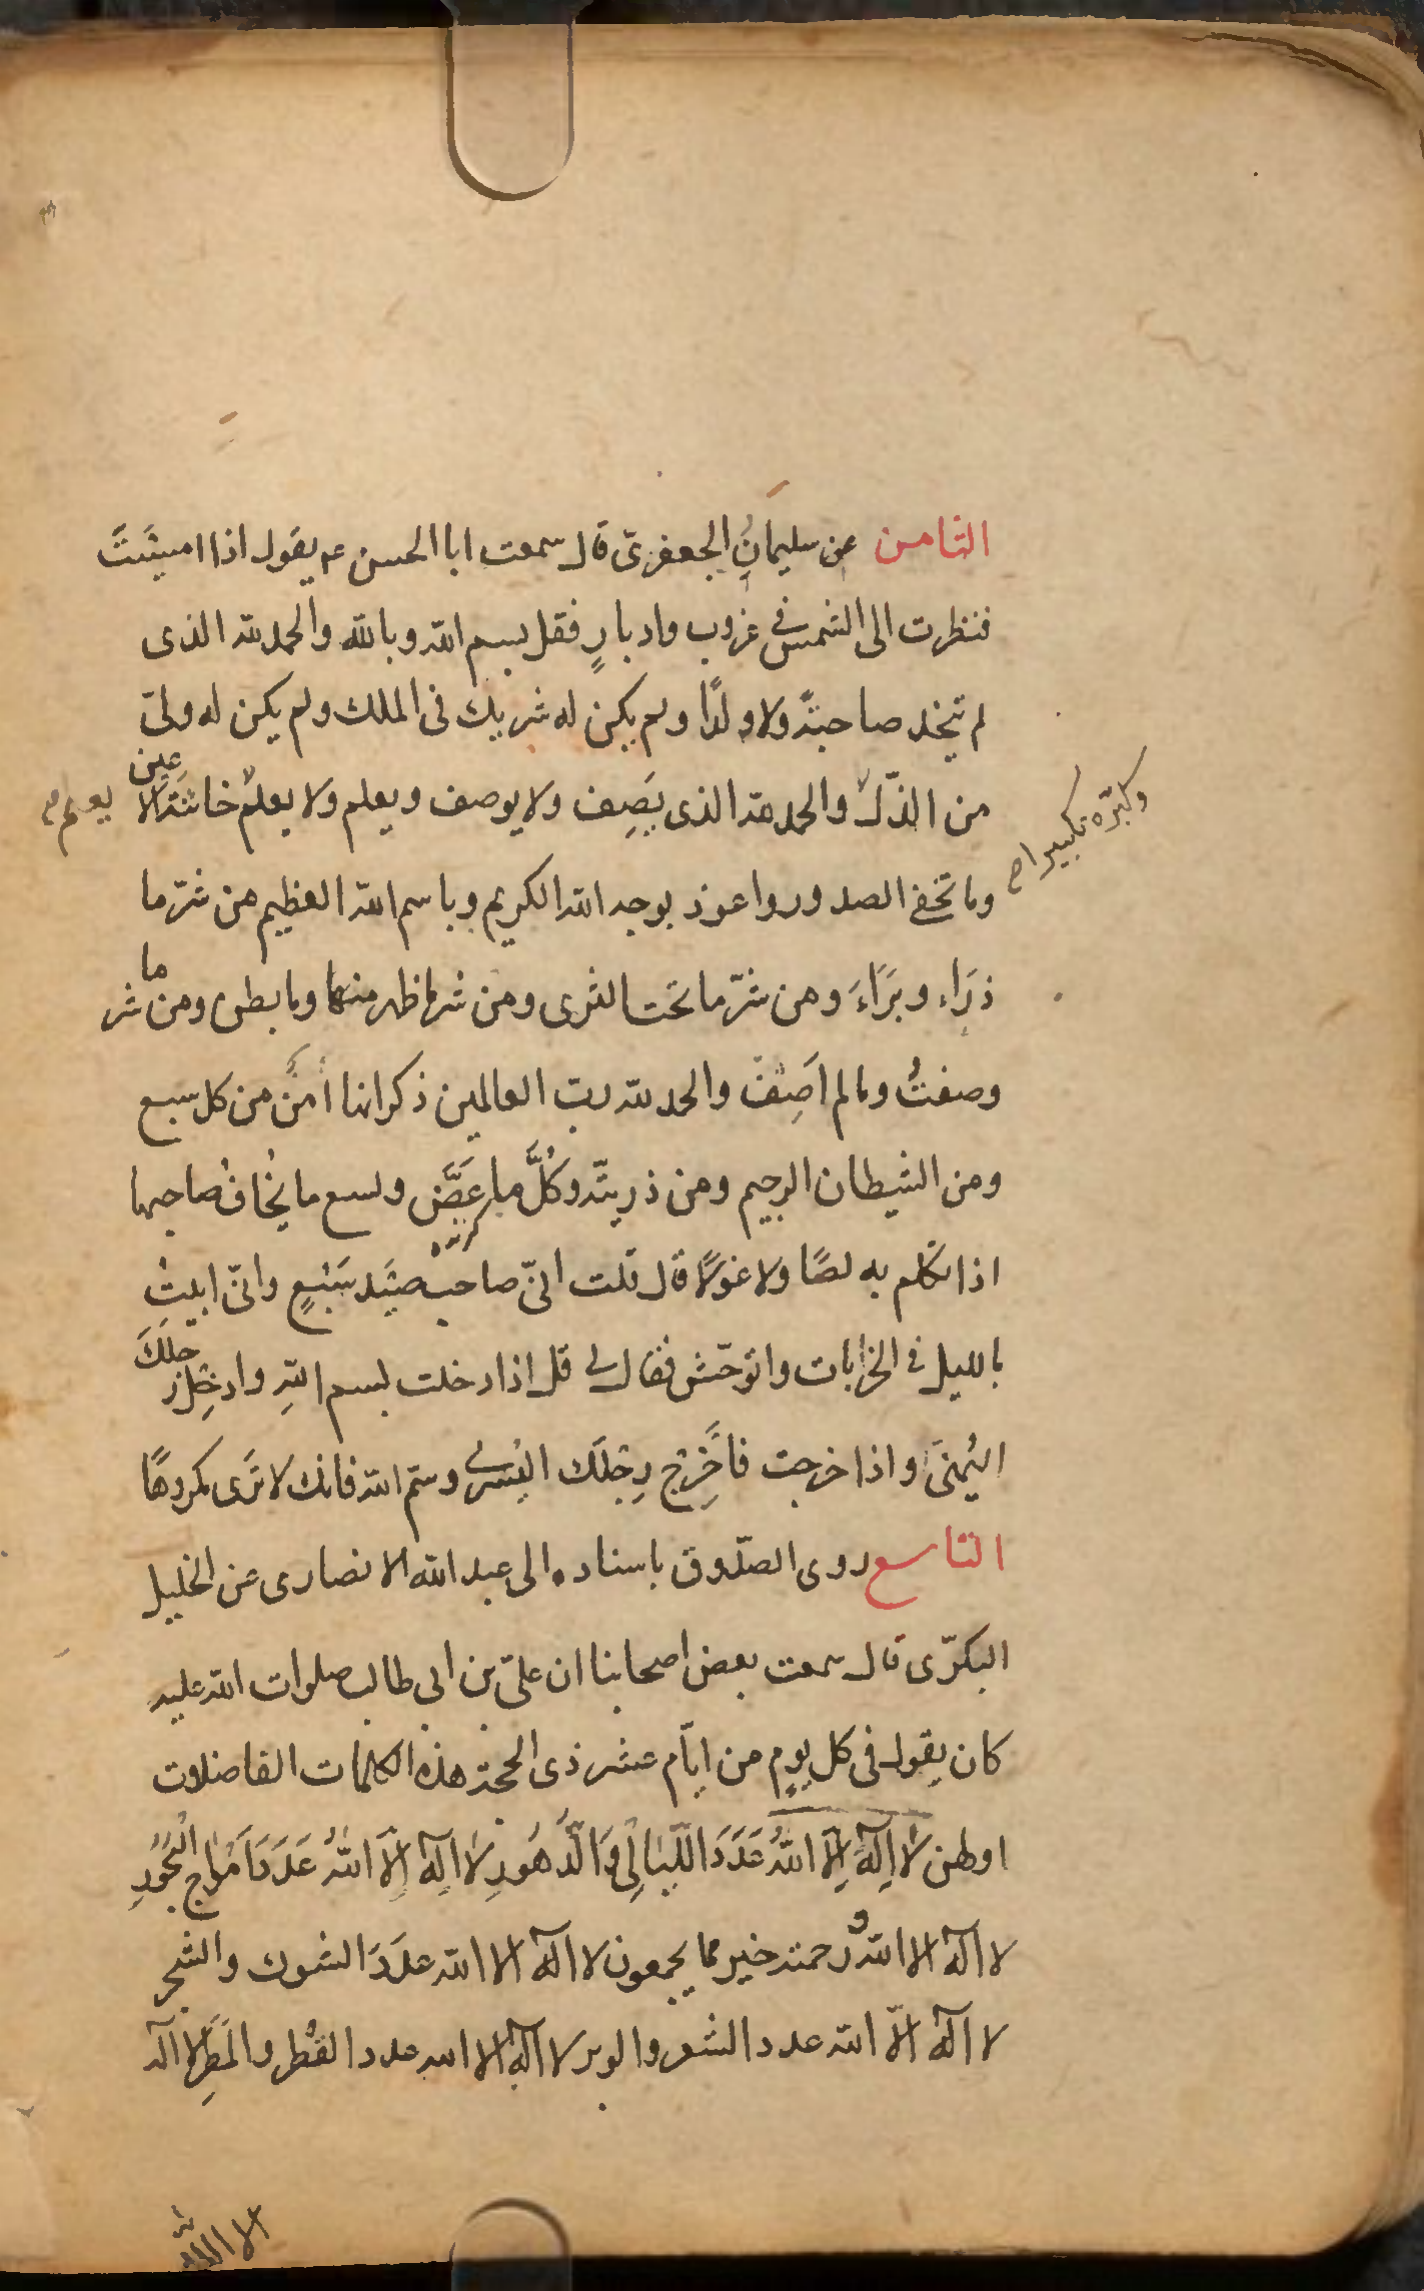 الثامن عن سليمان الجعفرىّ قال سمعت ابا الحسن ع يقول اذا امسَيتَ
فنظرت الى الشمس فى غروب وادبارٍ فقل بسم الله وبالله والحمد لله الذى
لم يتخذ صاحبةً ولا ولدًا ولم يكن له شريك فى الملك ولم يكن له ولىّ
من الذّلّ والحمد لله الذى يَصِف ولا يوصف ويعلم ولا يعلم خائنة الاعين
وكبّره تكبيرا
يعلم
وما تخفى الصدور واعوذ بوجه الله الكريم وباسم الله العظيم من شرّ ما
ذرَاء وبَرَاءَ ومن شرّ ما تحت الثرى ومن شر ما ظهر منها وما بطن ومن شر ما
وصفتُ وما لم اَصِفْ والحمد لله ربّ العالمين ذكر انها اَمنٌ من كل سبع
ومن الشيطان الرجيم ومن ذريّته وكُلَّ ما عَضَّ ولسع ما يخُافُ صاحبها
كزنده
اذا تكلم به لصًا ولا غولًا قال قلت انّى صاحب صَيْد سَبْعٍ وانّى ابيتُ
بالليل فى الخرابات واتوحّش فقال لى قل اذا دخلت بسم اللهِ وادخِل رجلَكَ
اليُمنَى واذا خرجت فاَخِرْج رِجْلَك اليُسرى وسمّ الله فانك لا تَرى مكروهًا
التاسع روى الصّدوق باسناده الى عبد الله الانصارى عن الخليل
البكرّى قال سمعت بعض اصحابنا ان علىّ بن ابى طالب صلوات الله عليه
كان يقول فى كل يومٍ من ايّام عشر ذى الحجة هذه الكلمات الفاضلات
اولهن لَا اِلٰهَ اِلَّا اللهُ عَدَدَ اللَّيَالِى وَالدُّهُورِ لَا اِلٰهَ اِلَّا اللهُ عَدَدَ اَمْوَاجِ الْبُحُورِ
لا اله الا الله ورحمته خير مما يجمعون لا اله الا الله عدَدَ الشوك والشجر
لا اله الّا الله عدد الشعر والوبر لا اله الا الله عدد القَطْر والمَطَرِ لا اله
الا الله